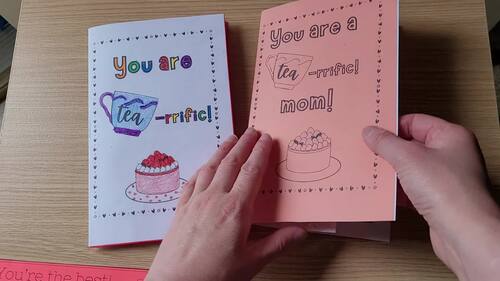 You are
tea -rrific!
You are a
tea -rrific!
mom!
You're the best!